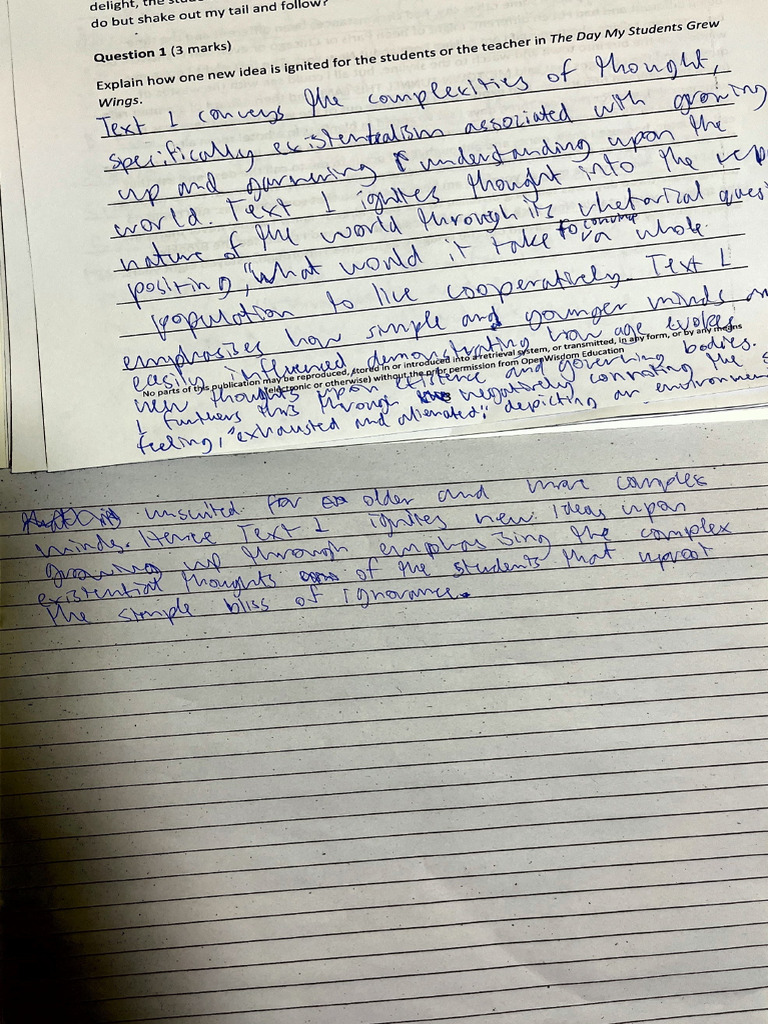 delight, the
do but shake out my tail and follow?
Question 1 (3 marks)
Explain how one new idea is ignited for the students or the teacher in The Day My Students Grew
Wings.
Text 1 conveys the complexities of thought,
specifically existentealism associated with growing
up and garnering understanding upon the
world. Text 1 ignites thought into the
nature of the world through its rhetorical
positing, "what would it take to convince a whole
population to live cooperatively. Text 1
emphasises how simple and younger minds
easily influenced demonstrating how age evokes
No parts of this publication may be reproduced, stored in or introduced into a retrieval system, or transmitted, in any form, or by any means
(electronic or otherwise) without the prior permission from OpenWisdom Education
new thoughts upon existence and governing bodies.
1 furthers this through negatively connoting the
feeling, "exhausted and alienated": depicting an
unsuited for older and more complex
minds. Hence Text 1 ignites new ideas upon
growing up through emphasising the complex
existential thoughts of the students that uproot
the simple bliss of ignorance.